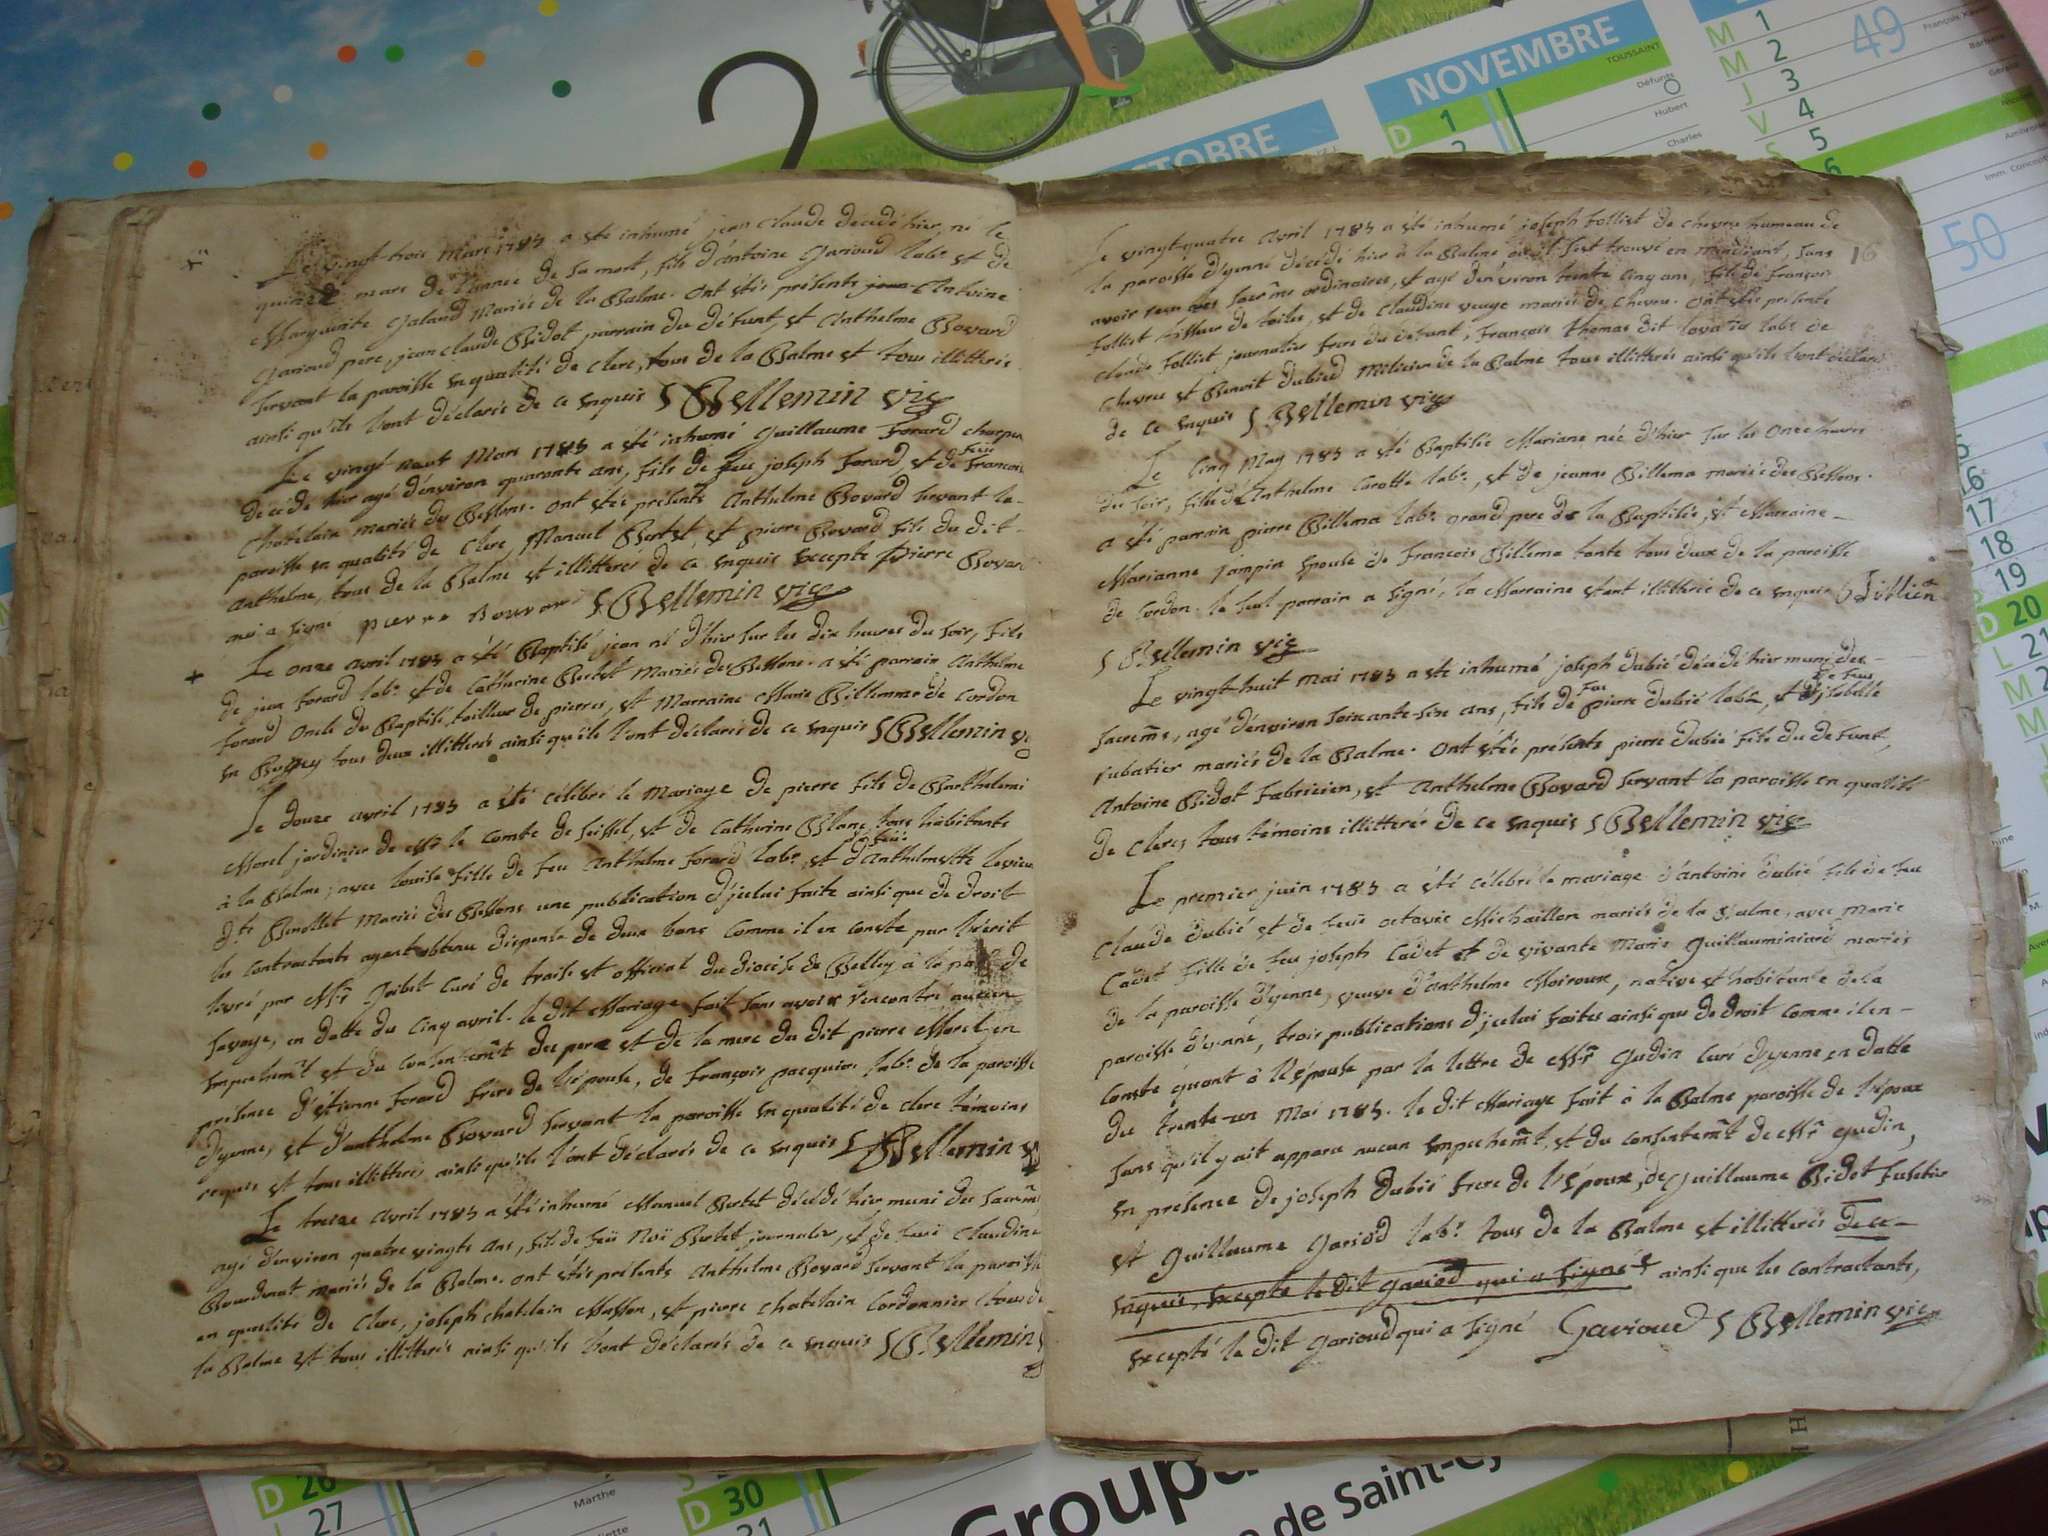 Le vingt trois Mars 1785 a été inhumé jean Claude decedé hier, né le
quinze mars de l'année de sa mort, fils d'Antoine Garioud labr. et de
Marguerite Galand Mariés de la Balme. Ont étés présents Antoine
Garioud pere, jean claude Bidot parrain du défunt, et Anthelme Bovard
servant la paroisse en qualité de clerc, tous de la Balme et tous illitterés
ainsi qu'ils l'ont déclarés de ce enquis Bellemin vic
Le vingt neuf Mars 1785 a été inhumé Guillaume Forard
décédé hier agé d'environ quarante ans, fils de feu joseph Forard, et de feue
Chatelain mariés des Bessons. Ont étés présents Anthelme Bovard servant la
paroisse en qualité de Clerc, Manuel Bertet, et pierre Bovard fils du dit
Anthelme, tous de la Balme et illitterés de ce enquis excepté pierre Bovard
qui a signé pierre Bouvar Bellemin vic
+ Le onze avril 1785 a été Baptisé jean né d'hier sur les dix heures du soir, fils
de jean Forard labr. et de Catherine Bertet Mariés des Bessons. a été parrain Anthelme
Forard Oncle du Baptisé, tailleur de pierres, et Marraine Marie Billemme de Cordon
en Bugey tous deux illitterés ainsi qu'ils l'ont déclarés de ce enquis Bellemin
Le douze avril 1785 a été célébré le Mariage de pierre fils de Barthelemi
Morel jardinier de Mr le Comte de Seissel, et de Catherine Blanc tous habitants
à la Balme; avec louise fille de feu Anthelme Forard labr. et de feüe d'Anthelmette
dte Benollet Mariés des Bessons une publication d'jcelui faite ainsi que de droit
les contractants ayant obtenu dispense de deux bans Comme il en conste par l'écrit
livré par Mr Goibet Curé de traise et official du diocése de Belley à la part de
Savoye, en datte du cinq avril. le dit Mariage fait sans avoir rencontré aucun
empechemt et du consentemt des pere et de la mere du dit pierre Morel, en
présence d'étienne Forard Frere de l'épouse, de François pacquier labr. de la paroisse
dyenne, et d'anthelme Bovard servant la paroisse en qualité de clerc témoins
requis et tous illitterés ainsi qu'ils l'ont déclarés de ce enquis Bellemin
Le treize avril 1785 a été inhumé Manuel Bertet décédé hier muni des
agé d'environ quatre vingts ans, fils de feü Noï Bertet journalier, et de feuë Claudine
Bourdenat mariés de la Balme. ont étés présents Anthelme Bovard servant la paroisse
en qualité de Clerc, joseph chatelain Masson, et pierre Chatelain Cordonnier tous de
la Balme et tous illitterés ainsi qu'ils l'ont déclarés de ce enquis Bellemin
16
Le vingt-quatre avril 1785 a été inhumé joseph Folliet de chevru hameau de
la paroisse dyenne décedé hier à la Balme où il s'est trouvé en mendiant, sans
avoir reçu les ordinaires, et agé d'environ trente cinq ans, fils de François
Folliet tisseur de toiles, et de Claudine mariés de chevru. Ont étés présents
Claude Folliet journalier frere du défunt, François thomas dit labr. de
chevru et Benoit dubied Milicien de la Balme tous illitterés ainsi qu'ils l'ont déclarés
de ce enquis Bellemin vic
Le cinq May 1785 a été Baptisée Mariane née d'hier sur les Onze heures
du soir, fille d'Anthelme Carotte labr., et de jeanne Billema mariés des Bessons.
a été parrain pierre Billema labr. Grand pere de la Baptisée, et Marraine
Marianne jampin épouse de François Billema tante tous deux de la paroisse
de Cordon. le seul parrain a signé, la Marraine étant illitterée de ce enquis
Bellemin vic
Le vingt-huit mai 1785 a été inhumé joseph dubié décédé hier muni des
sacremts, agé d'environ soixante-six ans, fils de feu pierre dubié labr, et de feue jsabelle
rubatier mariés de la Balme. Ont étés présents pierre dubié fils du defunt,
Antoine Bidot Fabricien, et Anthelme Bovard servant la paroisse en qualité
de clerc, tous témoins illitterés de ce enquis Bellemin vic
Le premier juin 1785 a été célébré le mariage d'antoine dubié fils de feu
Claude dubié et de feüe octavie Michaillon mariés de la Balme, avec Marie
Cadet fille de feu joseph Cadet et de vivante Marie Guillauminiard mariés
de la paroisse dyenne, veuve d'anthelme Moiroux, native et habitante de la
paroisse dyenne, trois publications d'jcelui faites ainsi que de droit comme il en
conste quant à l'épouse par la lettre de Mr Gudin Curé dyenne en datte
du trente-un Mai 1785. le dit Mariage fait à la Balme paroisse de l'époux
sans qu'il y ait apparu aucun empechemt, et du consentemt de Mr Gudin,
en présence de joseph dubié frere de l'époux, de Guillaume Bidot
et Guillaume Gariod labr. tous de la Balme et illitterés de ce
enquis, excepté le dit Gariod qui a signé ainsi que les contractants,
excepté le dit Garioud qui a signé Garioud Bellemin vic
NOVEMBRE
TOUSSAINT
D 1
Défunts
Hubert
Charles
M 1
M 2
J 3
V 4
S 5
6
49
50
16
17
18
S 19
D 20
L 21
D 26
27
Marthe
D 30
31
Group
e de Saint-Cy